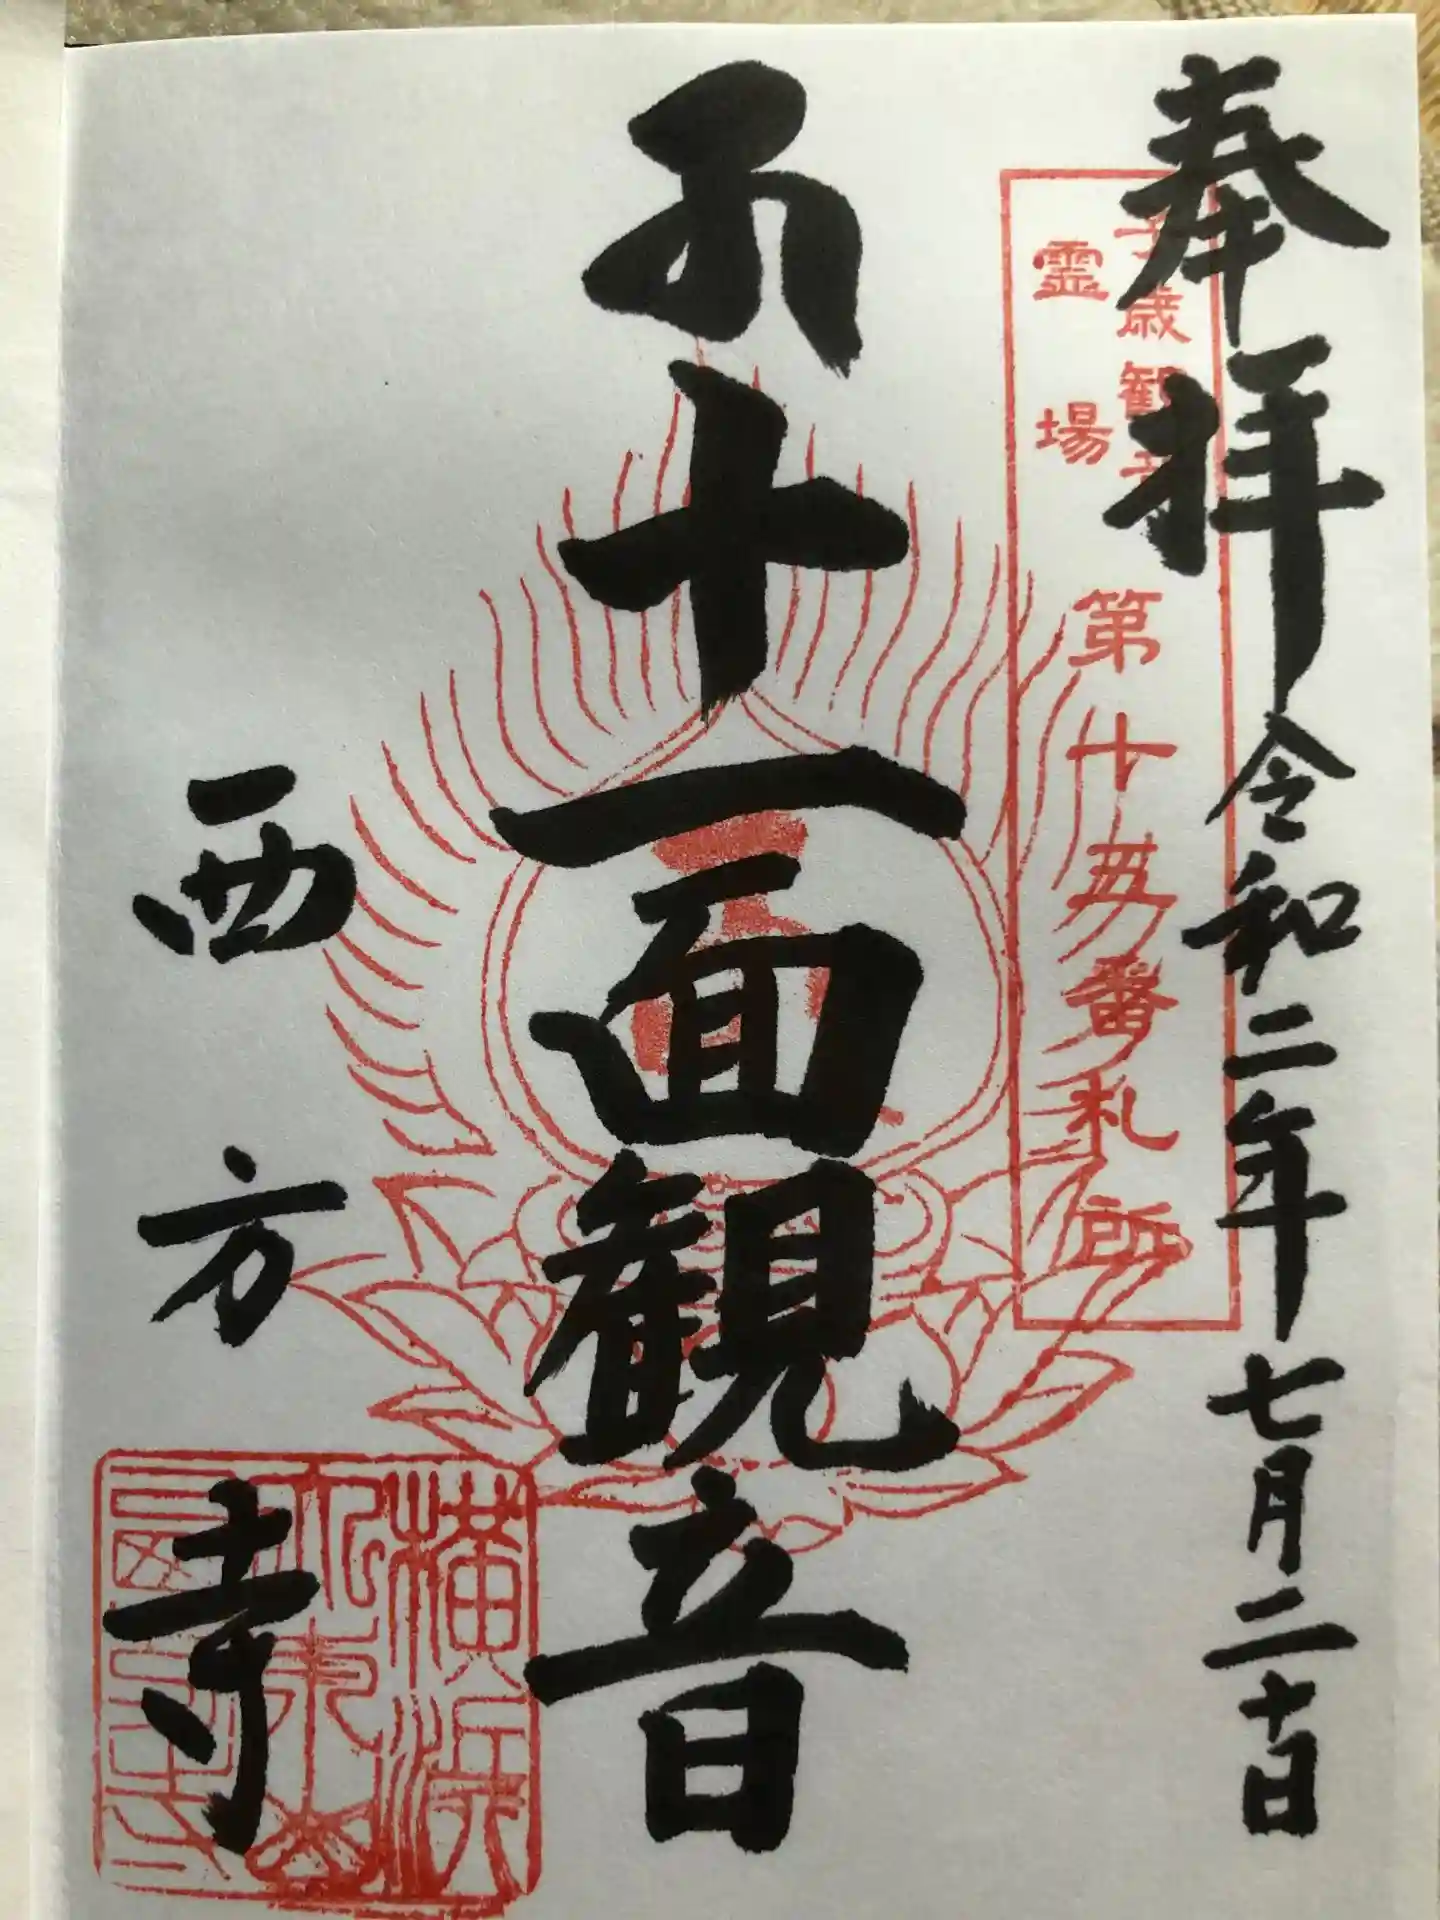 奉拝
令和二年七月二十日
子歳観音
霊場
第十五番札所
十一面観音
西方寺
横浜